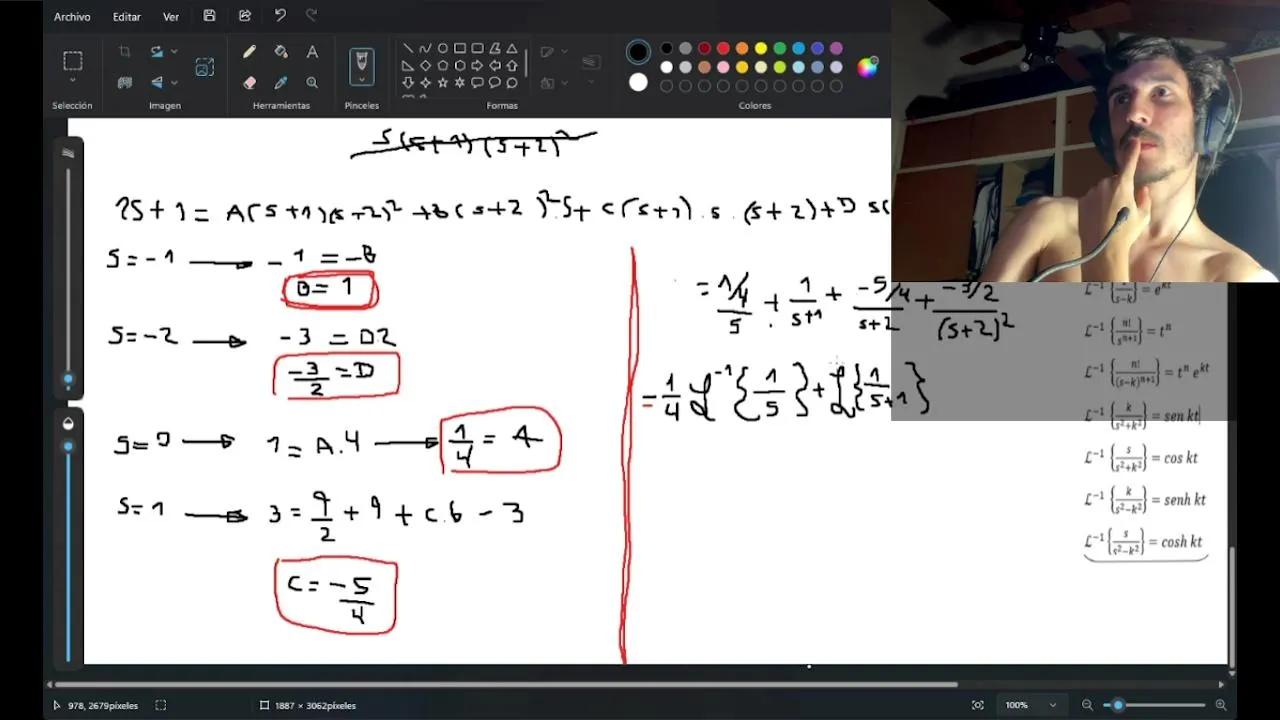 Archivo Editar Ver
Selección Imagen Herramientas Pinceles Formas Colores
S(S+1)(S+2)²
2S+1 = A(S+1)(S+2)² + B(S+2)².S + C(S+1).S.(S+2) + D S(
S=-1 → -1 = -B
B = 1
S=-2 → -3 = D2
-3/2 = D
S=0 → 1 = A.4 → 1/4 = A
S=1 → 3 = 9/2 + 9 + C.6 - 3
C = -5/4
= 1/4/S + 1/S+1 + -5/4/S+2 + -3/2/(S+2)²
= 1/4 ℒ⁻¹{1/S} + ℒ{1/S+1}
ℒ⁻¹{1/s-k} = eᵏᵗ
ℒ⁻¹{n!/sⁿ⁺¹} = tⁿ
ℒ⁻¹{n!/(s-k)ⁿ⁺¹} = tⁿ eᵏᵗ
ℒ⁻¹{k/s²+k²} = sen kt
ℒ⁻¹{s/s²+k²} = cos kt
ℒ⁻¹{k/s²-k²} = senh kt
ℒ⁻¹{s/s²-k²} = cosh kt
978, 2679píxeles 1887 × 3062píxeles 100%